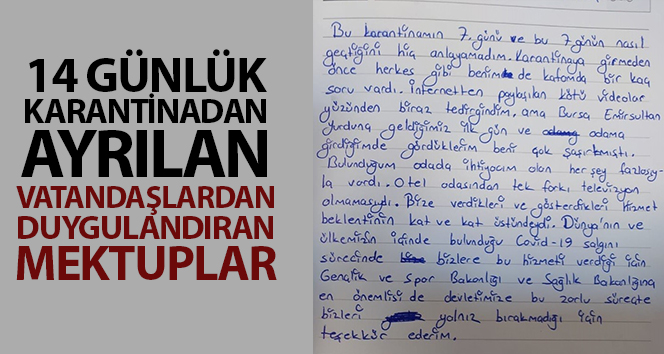 14 GÜNLÜK
KARANTİNADAN
AYRILAN
VATANDAŞLARDAN
DUYGULANDIRAN
MEKTUPLAR
Bu karantinamın 7. günü ve bu 7 günün nasıl
geçtiğini hiç anlayamadım. Karantinaya girmeden
önce herkes gibi benim de kafamda bir kaç
soru vardı. İnternetten paylaşılan kötü videolar
yüzünden biraz tedirgindim, ama Bursa Emirsultan
Yurduna geldiğimiz ilk gün ve odama
girdiğimde gördüklerim beni çok şaşırtmıştı.
Bulunduğum odada ihtiyacım olan her şey fazlasıy-
la vardı. Otel odasından tek farkı televizyon
olmamasıydı. Bize verdikleri ve gösterdikleri hizmet
beklentinin kat ve kat üstündeydi. Dünya'nın ve
ülkemizin içinde bulunduğu Covid-19 salgını
sürecinde bizlere bu hizmeti verdiği için
Gençlik ve Spor Bakanlığı ve Sağlık Bakanlığına
en önemlisi de devletimize bu zorlu süreçte
bizleri yalnız bırakmadığı için
teşekkür ederim.